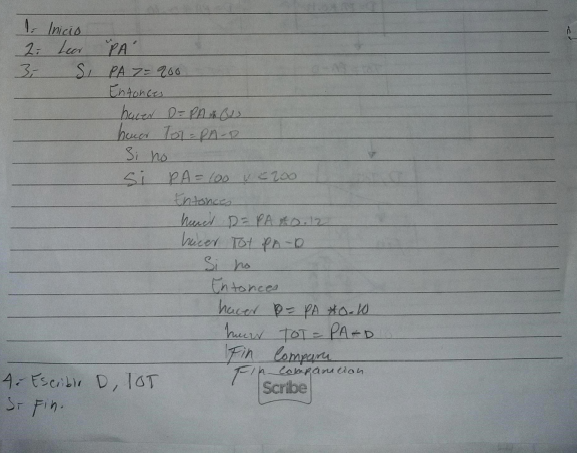 1.- Inicio
2.- Leer "PA"
3.- Si PA >= 200
Entonces
hacer D = PA *
hacer TOT = PA - D
Si no
Si PA = 100 y < 200
Entonces
hacer D = PA * 0.12
hacer TOT PA - D
Si no
Entonces
hacer D = PA * 0.10
hacer TOT = PA - D
Fin Compara
Fin comparacion
4.- Escribir D, TOT
5.- Fin.
Scribe